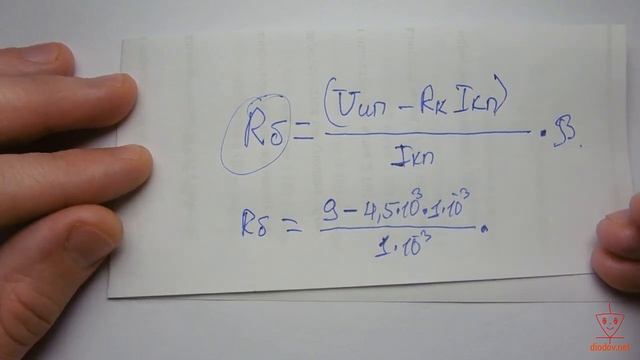 Rб = (Uип – Rк Iкп) / Iкп · β.
Rб = 9 – 4,5·10³·1·10⁻³ / 1·10⁻³ ·
diodov.net